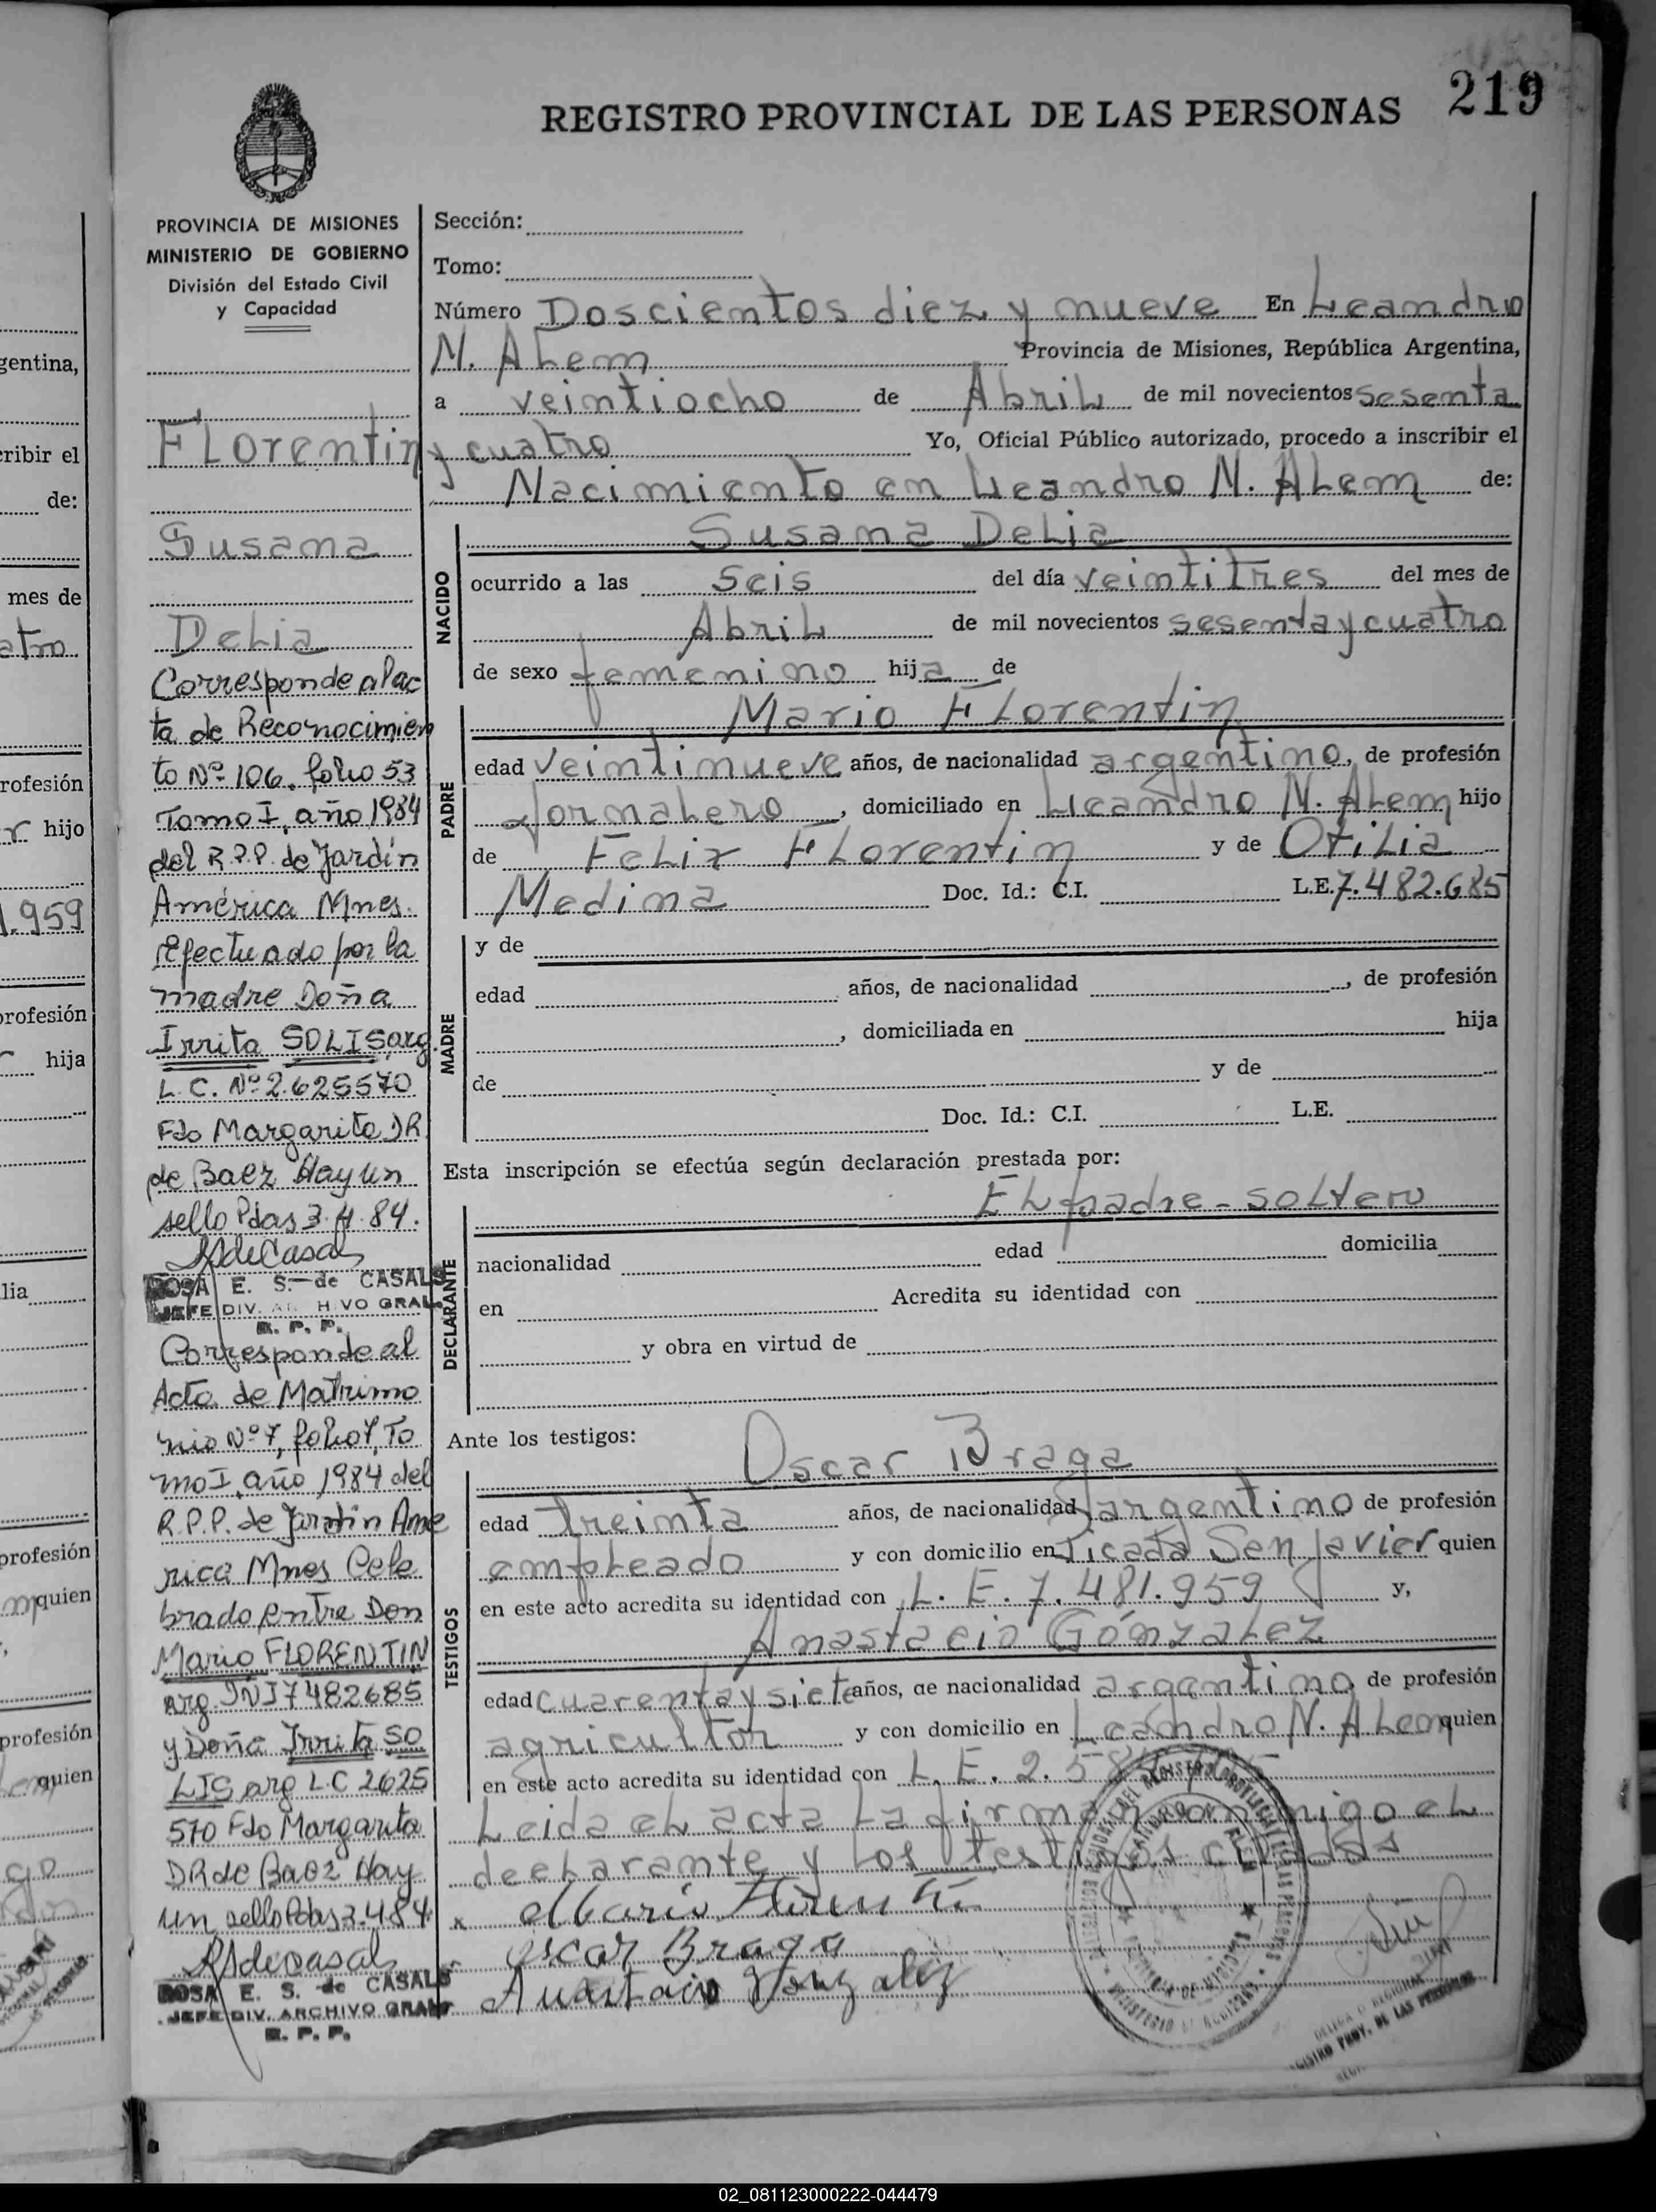 REGISTRO PROVINCIAL DE LAS PERSONAS 219
PROVINCIA DE MISIONES
MINISTERIO DE GOBIERNO
División del Estado Civil
y Capacidad
Florentin
Susana
Delia
Corresponde al ac
ta de Reconocimien
to Nº 106, folio 53
Tomo I, año 1984
del R.P.P. de Jardín
América Mnes.
efectuado por la
madre Doña
Irrita SOLIS arg.
L.C. Nº 2.625570
Fdo Margarita DR
de Baez Hay un
sello Pdas 3.4.84.
RSdeCasals
ROSA E. S. de CASALS
JEFE DIV. ARCHIVO GRAL.
R. P. P.
Corresponde al
Acta de Matrimo
nio Nº 7, folio 7, To
mo I, año 1984 del
R.P.P. de Jardín Amé
rica Mnes Cele
brado entre Don
Mario FLORENTIN
arg. DNI 7482685
y Doña Irrita SO
LIS arg L.C 2625
570 Fdo Margarita
DR de Baez Hay
un sello Pdas 3.4.84
RSdecasals
ROSA E. S. de CASALS
JEFE DIV. ARCHIVO GRAL
R. P. P.
Sección:
Tomo:
Número Doscientos diez y nueve En Leandro
N. Alem Provincia de Misiones, República Argentina,
a veintiocho de Abril de mil novecientos sesenta
y cuatro Yo, Oficial Público autorizado, procedo a inscribir el
Nacimiento en Leandro N. Alem de:
NACIDO
Susana Delia
ocurrido a las seis del día veintitres del mes de
Abril de mil novecientos sesenta y cuatro
de sexo femenino hija de
PADRE
Mario Florentin
edad veintinueve años, de nacionalidad argentino, de profesión
Jornalero, domiciliado en Leandro N. Alem hijo
de Felix Florentin y de Otilia
Medina Doc. Id.: C.I. L.E. 7.482.685
MADRE
y de
edad años, de nacionalidad , de profesión
, domiciliada en hija
de y de
Doc. Id.: C.I. L.E.
Esta inscripción se efectúa según declaración prestada por:
DECLARANTE
El padre - soltero
nacionalidad edad domicilia
en Acredita su identidad con
y obra en virtud de
Ante los testigos:
TESTIGOS
Oscar Braga
edad treinta años, de nacionalidad argentino de profesión
empleado y con domicilio en Picada San Javier quien
en este acto acredita su identidad con L. E. 7.481.959 y,
Anastacio Gónzalez
edad cuarenta y siete años, de nacionalidad argentino de profesión
agricultor y con domicilio en Leandro N. Alem quien
en este acto acredita su identidad con L. E. 2.58
Leida el acta la firman conmigo el
declarante y los testigos citados
x Mario Florentin
oscar Braga
Anastacio Gonzalez
REGISTRO PROV. DE LAS PERSONAS
gentina,
cribir el
de:
mes de
atro
rofesión
r hijo
1.959
profesión
hija
lia
profesión
quien
profesión
quien
02_081123000222-044479